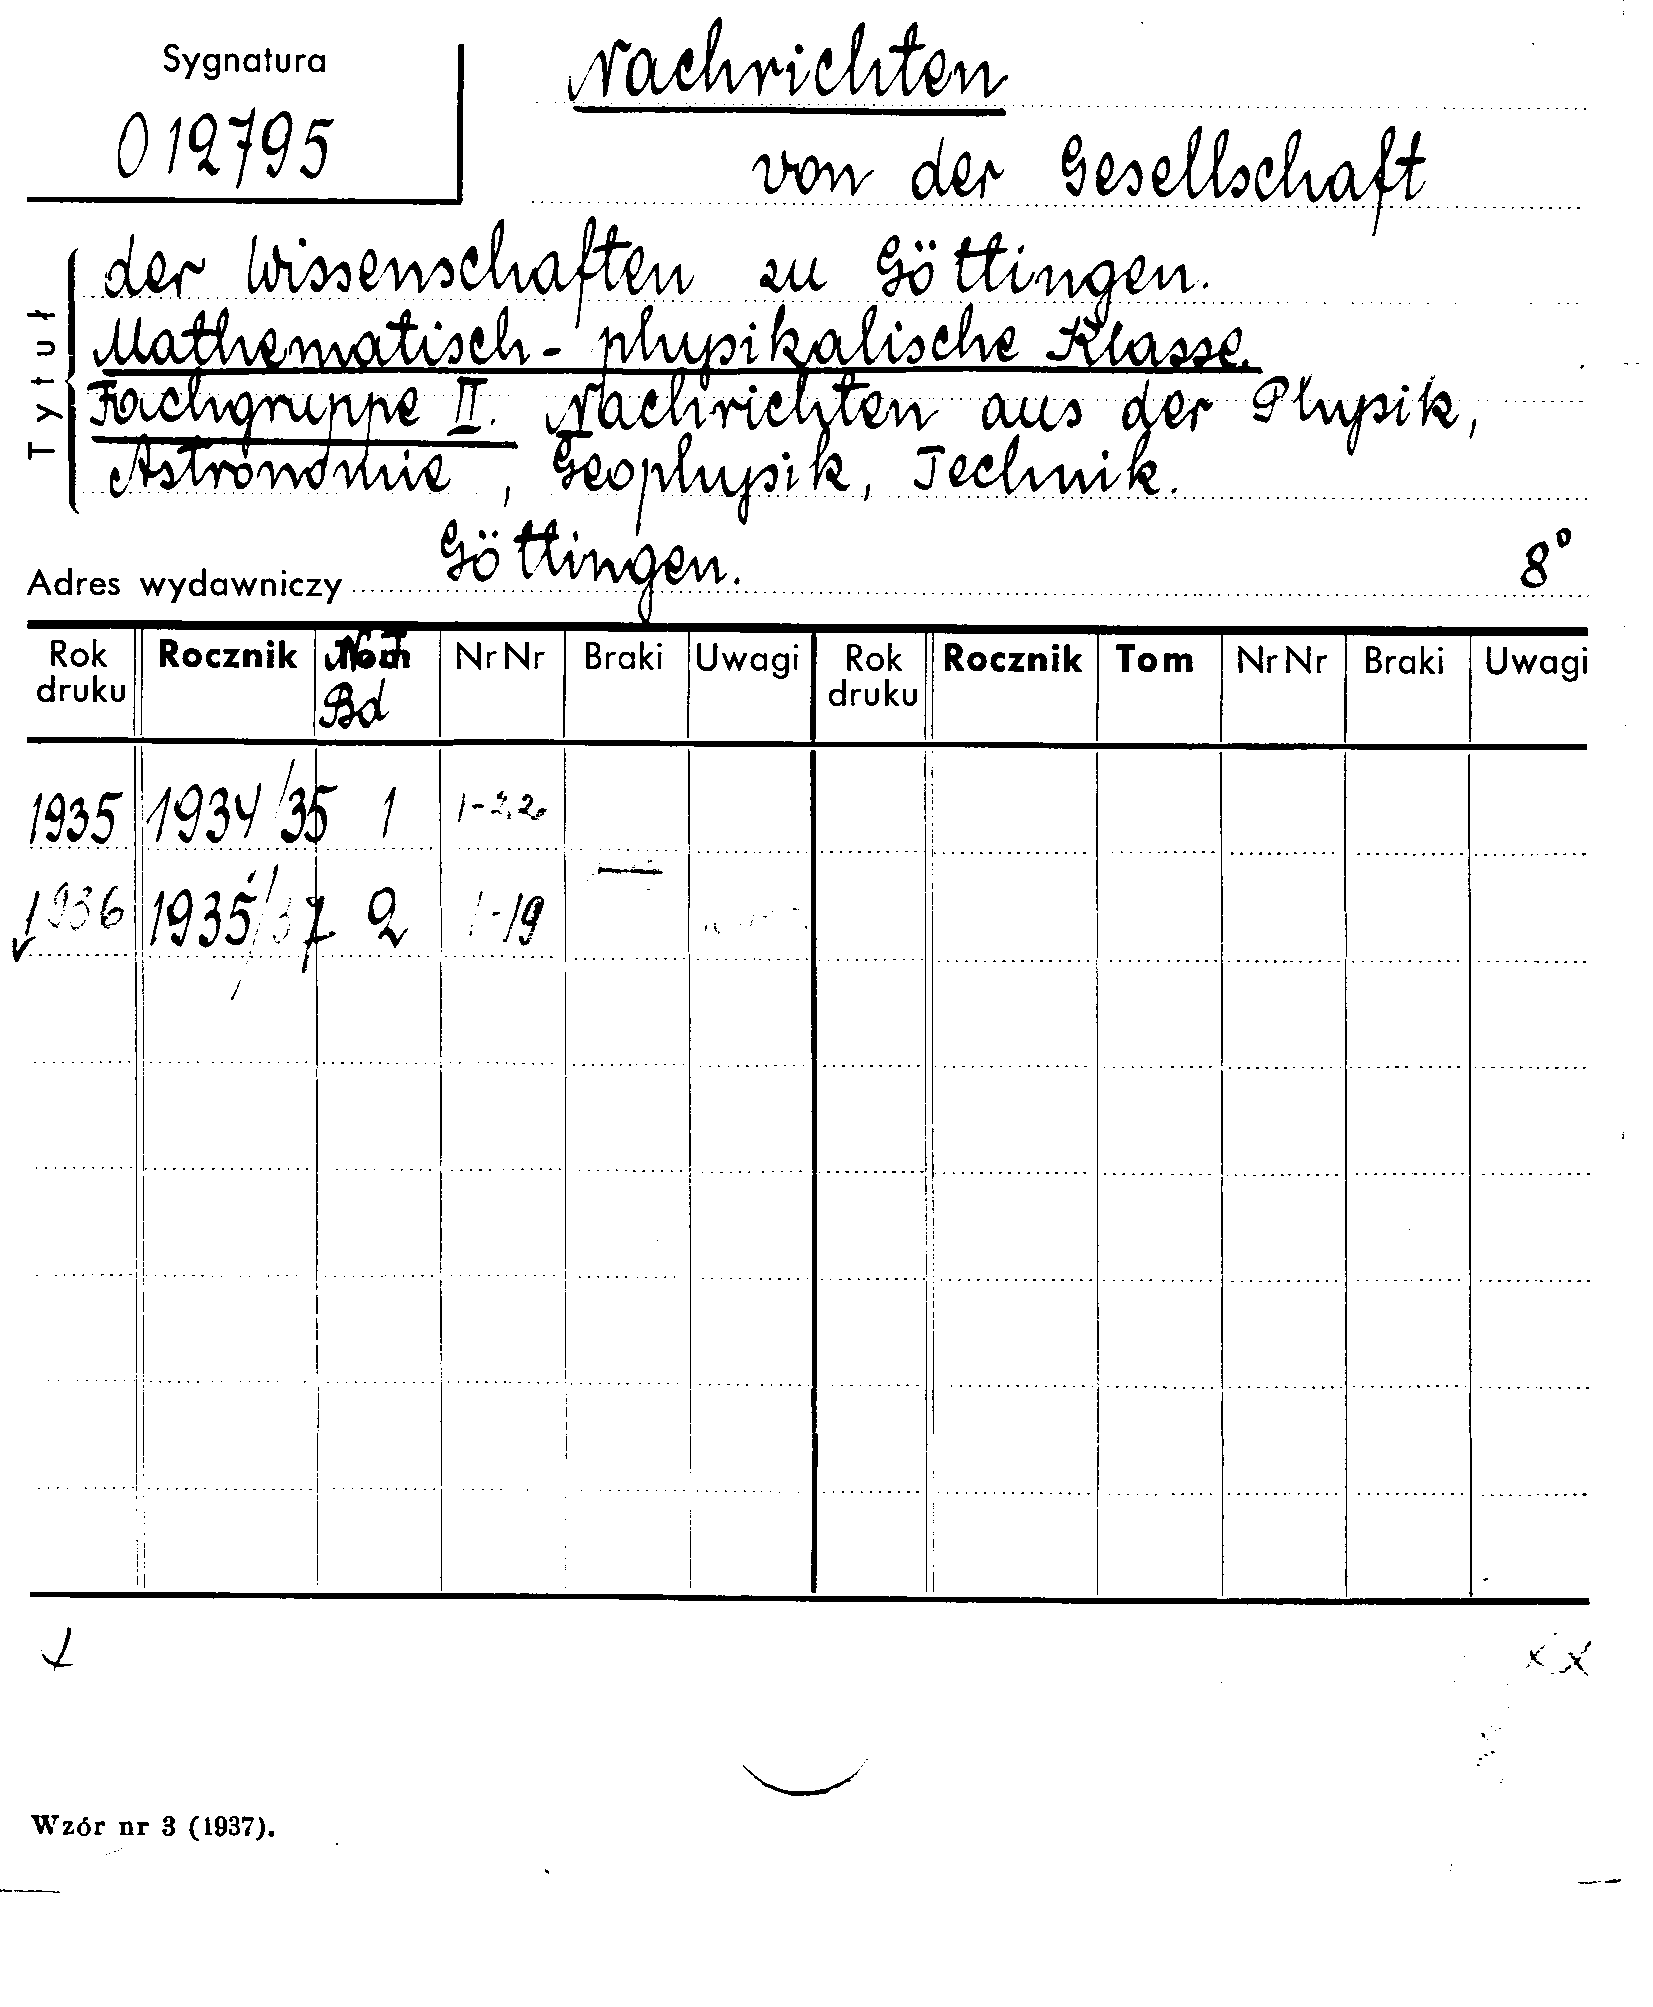 Sygnatura
012795
Nachrichten
von der Gesellschaft
Tytuł
der Wissenschaften zu Göttingen.
Mathematisch-physikalische Klasse.
Fachgruppe II. Nachrichten aus der Physik,
Astronomie, Geophysik, Technik.
Adres wydawniczy Göttingen. 8°
Rok druku Rocznik Tom Bd Nr Nr Braki Uwagi Rok druku Rocznik Tom Nr Nr Braki Uwagi
1935 1934/35 1
1936 1935/37 2 1-19
x x
Wzór nr 3 (1937).